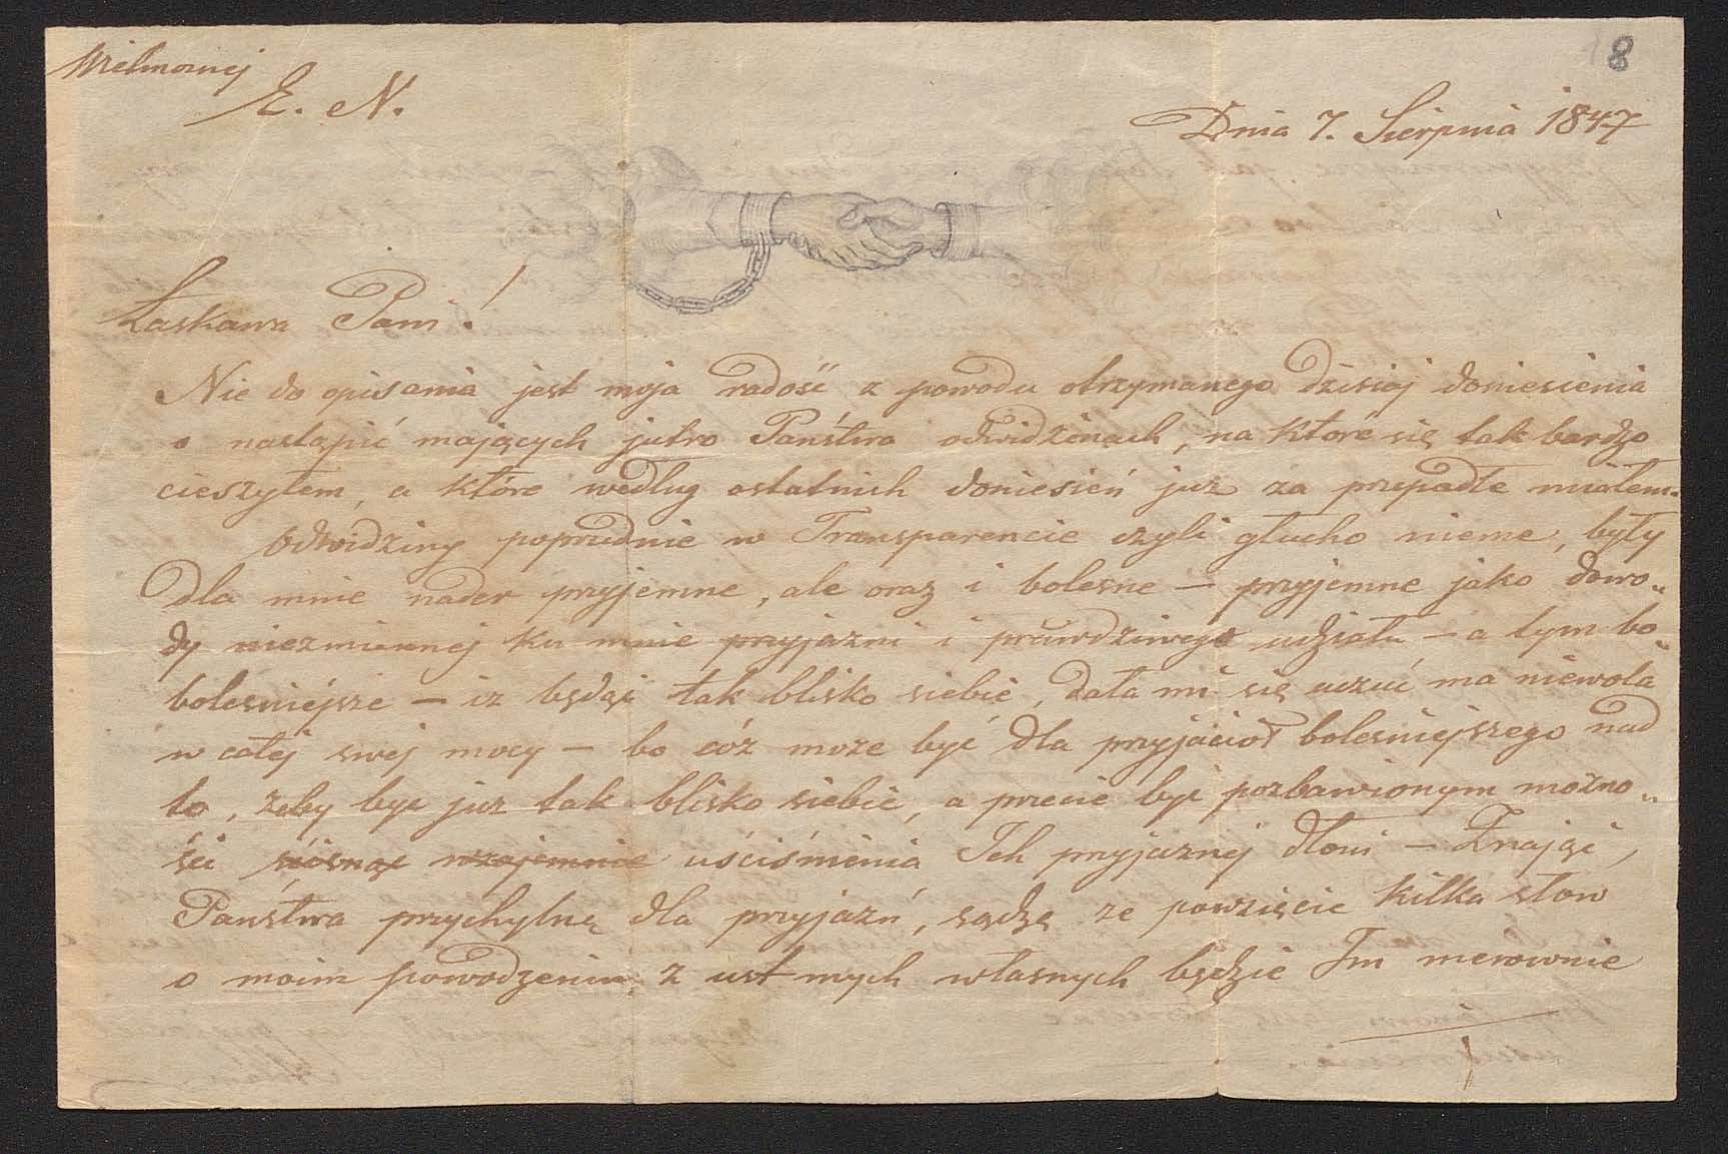 Wielmożnej
8
E. N.
Dnia 7. Sierpnia 1847
Łaskawa Pani!
Nie do opisania jest moja radość z powodu otrzymanego dzisiaj doniesienia
o nastąpić mających jutro Państwa odwidzinach, na które się tak bardzo
cieszyłem, a które według ostatnich doniesień już za przepadłe miałem.
Odwidziny poprzednie w Transparencie czyli głucho nieme, były
dla mnie nader przyjemne, ale oraz i bolesne – przyjemne jako dowo„
dy niezmiennej ku mnie przyjazni i prawdziwego udziału – a tym bo„
bolesniejsze – iz będąc tak blisko siebie, dała mi się uczuć ma niewola
w całej swej mocy – bo cóz może być dla przyjaciół bolesniejszego nad
to, żeby być juz tak blisko siebie, a przecie być pozbawionym możno„
ści wzajemnie uściśnienia Ich przyjaznej dłoni – Znając,
Państwa przychylną dla przyjazń, sądzę ze powzięcie kilka słow
o moim powodzeniu, z ust mych własnych będzie Im